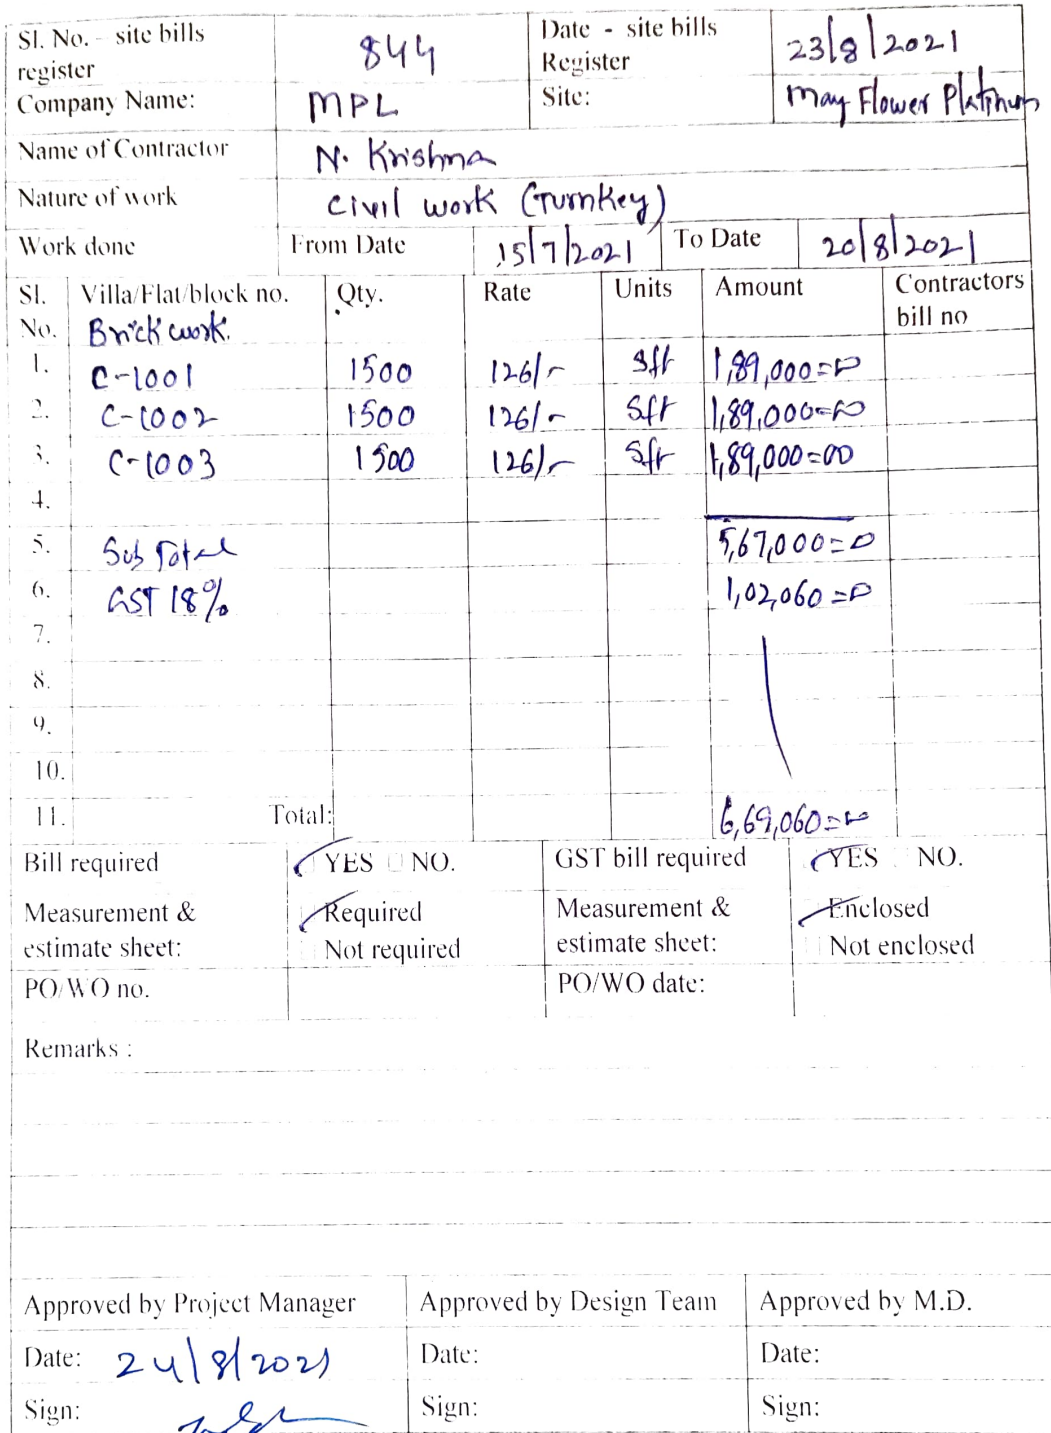 Sl. No. - site bills register 844 Date - site bills Register 23/8/2021
Company Name: MPL Site: May Flower Platinum
Name of Contractor N. Krishna
Nature of work Civil work (Turnkey)
Work done From Date 15/7/2021 To Date 20/8/2021
Sl. No. Villa/Flat/block no. Qty. Rate Units Amount Contractors bill no
Brick work.
1. C-1001 1500 126/- Sft 1,89,000=00
2. C-1002 1500 126/- Sft 1,89,000=00
3. C-1003 1500 126/- Sft 1,89,000=00
4.
5. Sub Total 5,67,000=00
6. GST 18% 1,02,060=00
7.
8.
9.
10.
11. Total: 6,69,060=00
Bill required YES NO. GST bill required YES NO.
Measurement & estimate sheet: Required Not required Measurement & estimate sheet: Enclosed Not enclosed
PO/WO no. PO/WO date:
Remarks :
Approved by Project Manager Approved by Design Team Approved by M.D.
Date: 24/8/2021 Date: Date:
Sign: Sign: Sign: